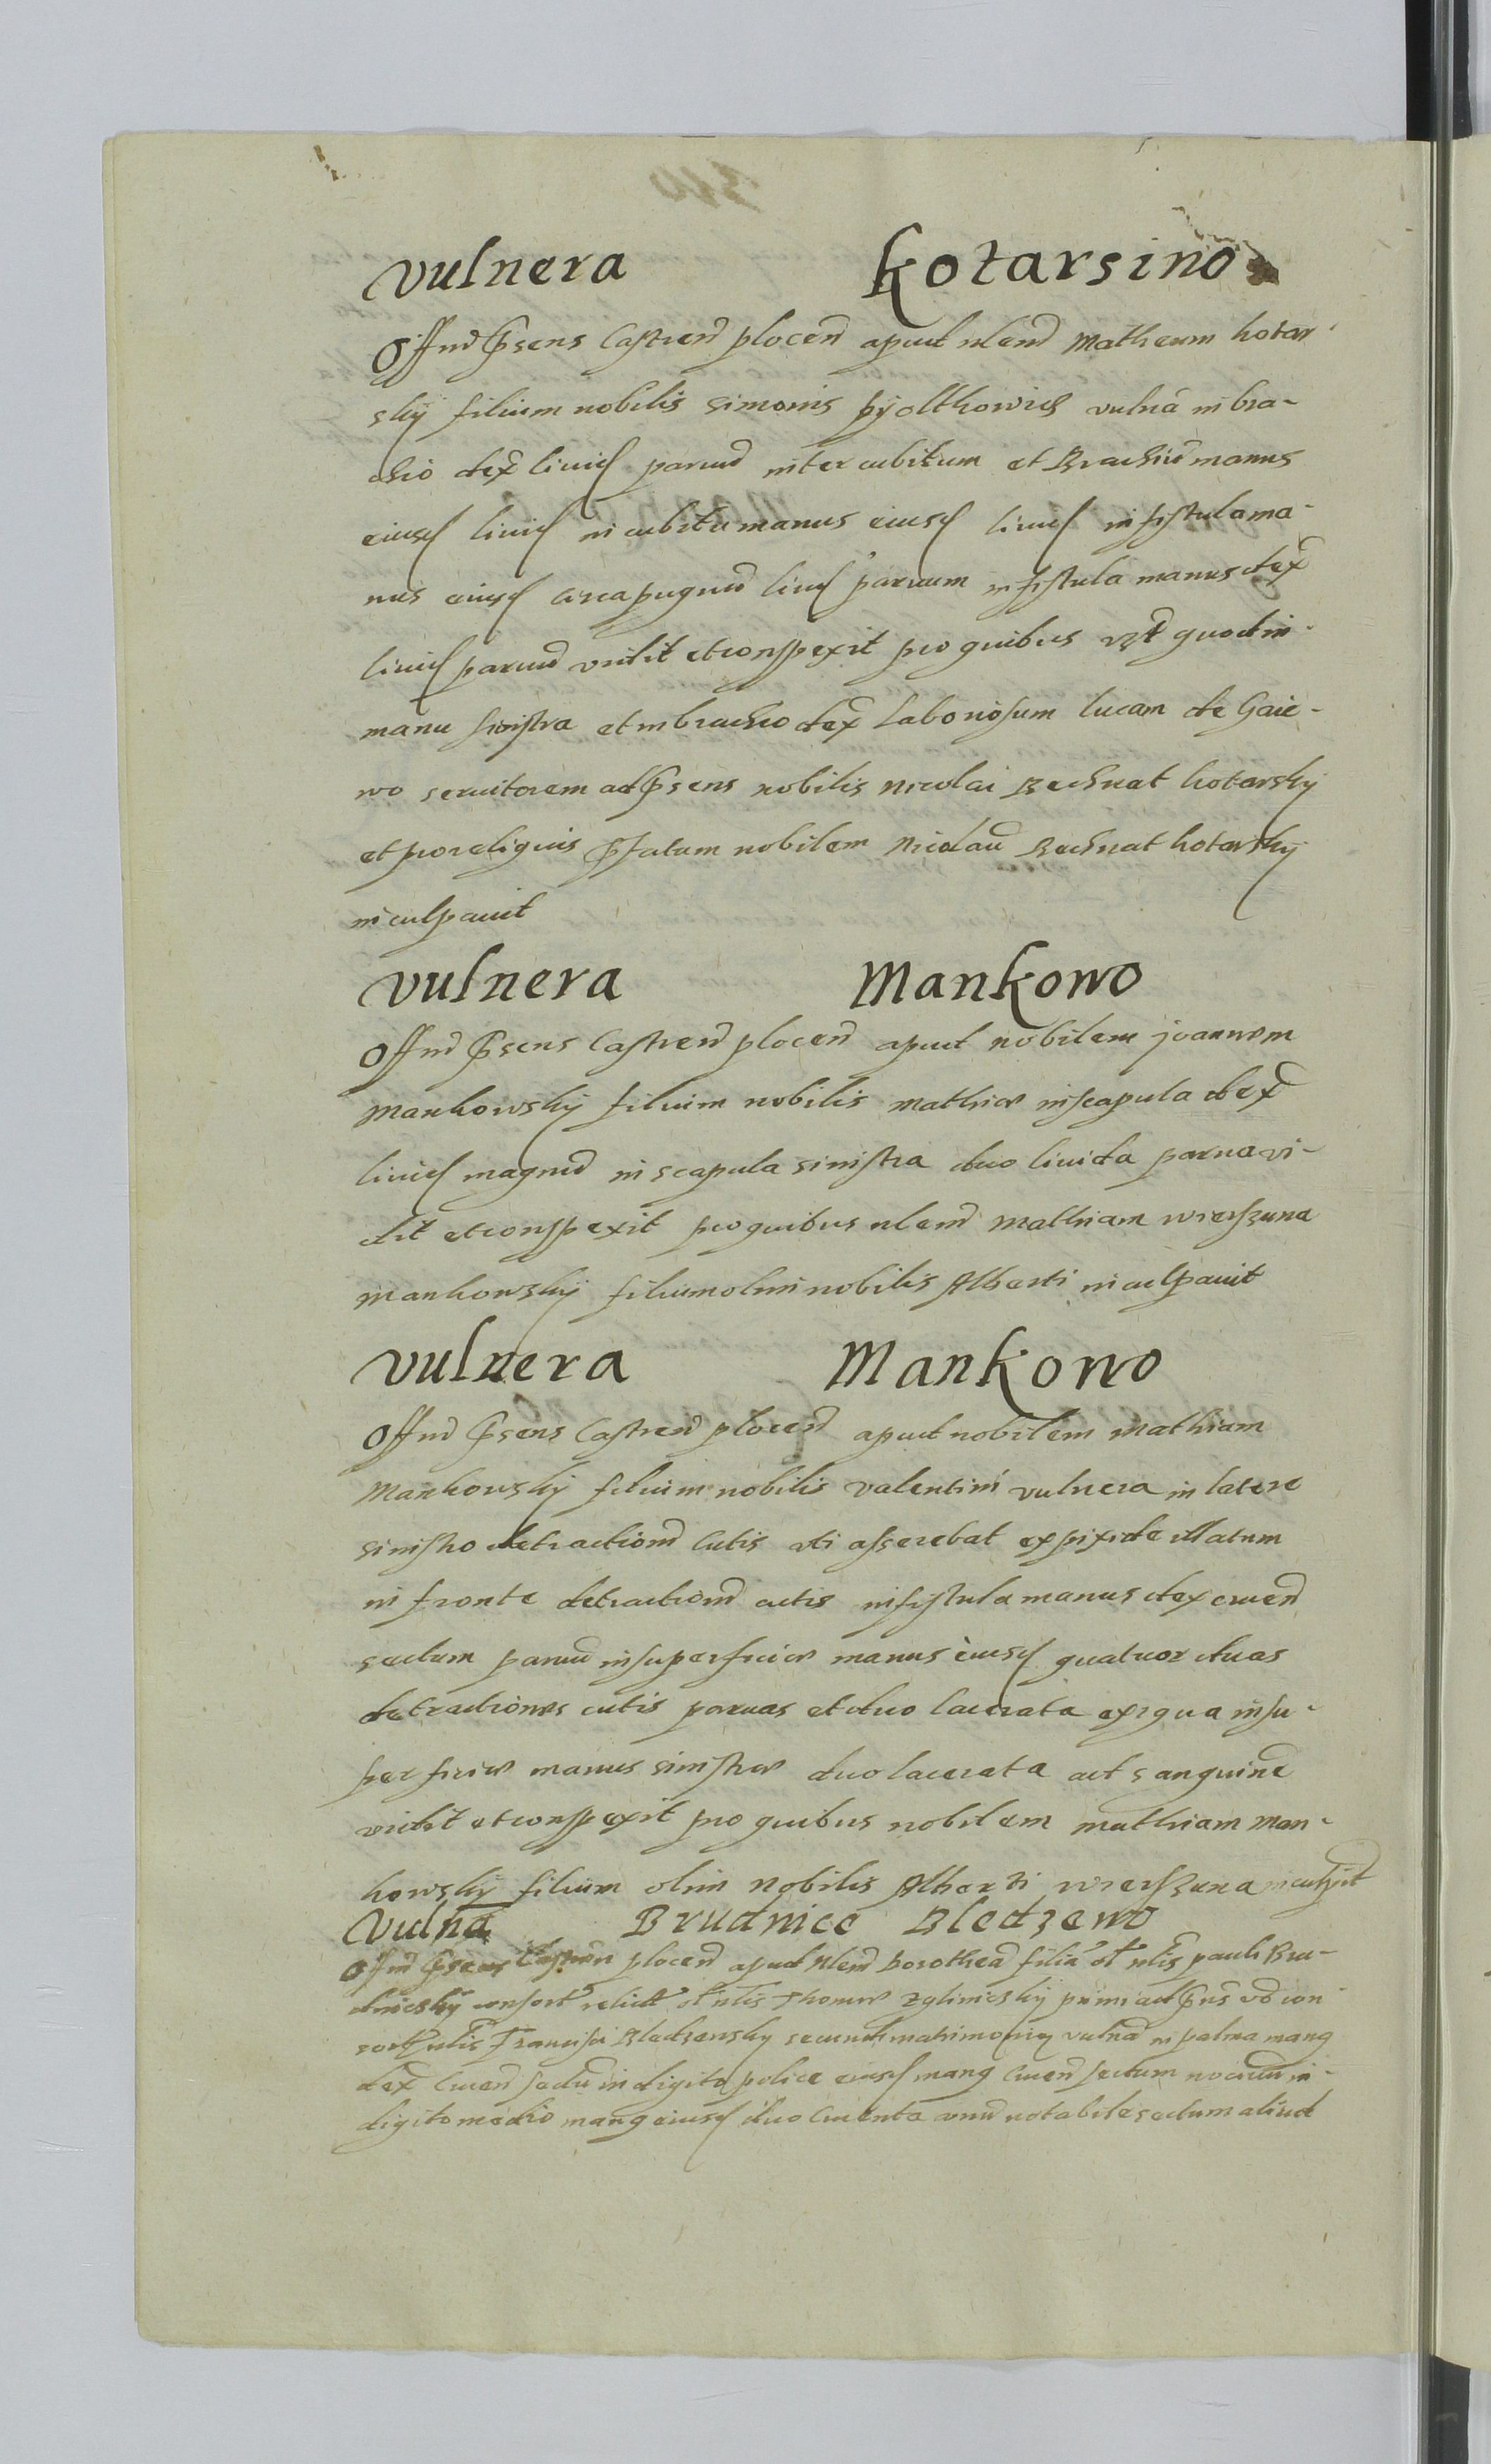 vulnera kotarsino
Offm Psens Castren plocen apud nlem Matheum kotar-
skÿ filium nobilis Simonis pÿolthowicz vulna in bra-
chio dex livid parvum inter cubitum et Brachiu manus
eiusd livid in cubitu manus eiusd livid in fistula ma-
nus eiusd circa pugnum livid parvum in fistula manus dex
livid parvum vidit et conspexit pro quibus quod in
manu sinistra et in brachio dex Laboriosum Lucam de Gaie-
wo servitorem ad Psens nobilis Nicolai Bechnat kotarskÿ
et pro reliquis Pfatum nobilem Nicolau Bechnat kotarskÿ
inculpavit
vulnera Mankowo
Offm Psens Castren plocen apud nobilem joannem
Mankowskÿ filium nobilis Mathiæ in scapula dex
livid magnum in scapula sinistra duo livida parva vi-
dit et conspexit pro quibus nlem Mathiam wierszuna
Mankowskÿ filium olim nobilis Alberti inculpavit
vulnera Mankowo
Offm Psens Castren plocen apud nobilem Mathiam
Mankowskÿ filium nobilis Valentini vulnera in latere
sinistro detractionem Cutis uti asserebat ex pixide illatum
in fronte detractionem cutis in fistula manus dex cruen
sectum parvum in superficiæ manus eiusd quatuor duas
detractiones cutis parvas et duo lacerata exigua in su-
perficiæ manus sinistræ duo lacerata ad sanguinem
vidit et conspexit pro quibus nobilem Mathiam Man-
kowskÿ filium olim nobilis Alberti wierszuna inculpvit
Vulna Brudnice Bledzewo
Offm Psens Castren plocen apud Nlem Dorothea filia ol nlis pauli Bru-
dnickÿ consort relict ol nlis Thomæ Zglinickÿ primi ad Pns con-
sort nlis Francisci Bledzewsky secundi matrimonior vulna in palma mang
dex Cruen sectu in digito police eiusd mang Cruen sectum nocivum in
digito medio mang eiusd duo Cruenta unum notabile sectum aliud